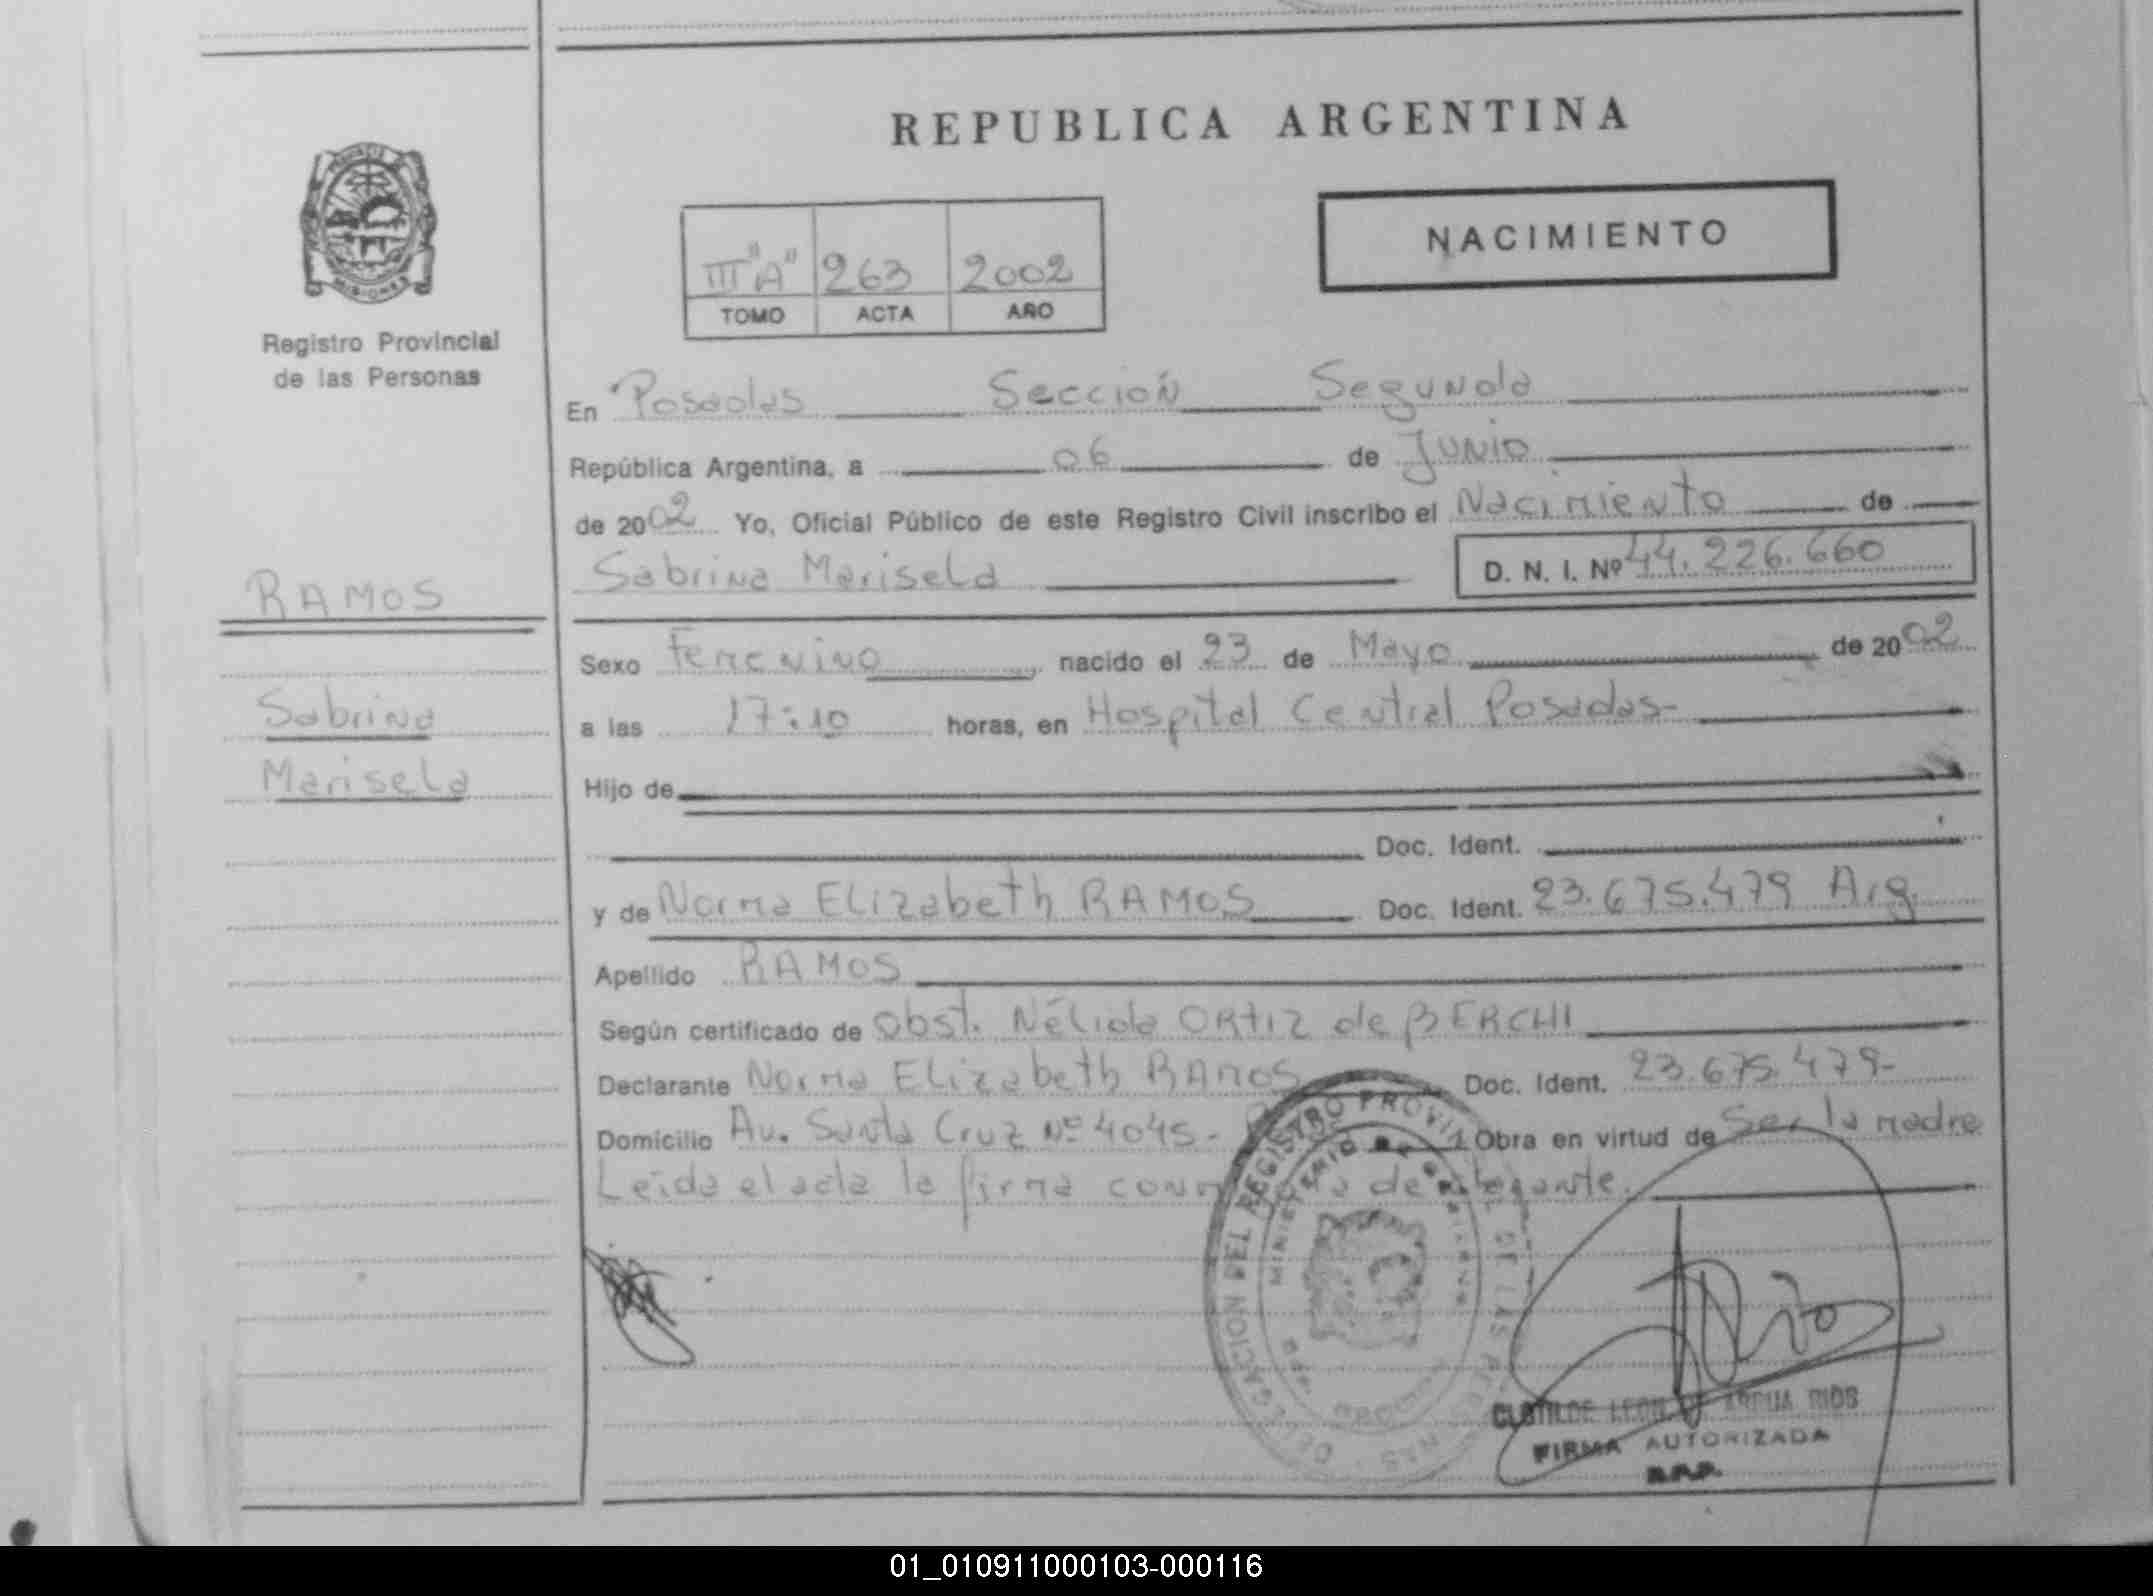 REPUBLICA ARGENTINA
NACIMIENTO
III "A" 263 2002
TOMO ACTA AÑO
PROVINCIA
MISIONES
Registro Provincial
de las Personas
RAMOS
Sabrina
Marisela
En Posadas Sección Segunda
República Argentina, a 06 de Junio
de 2002 Yo, Oficial Público de este Registro Civil inscribo el Nacimiento de
Sabrina Marisela D. N. I. Nº 44.226.660
Sexo Femenino, nacido el 23 de Mayo de 2002
a las 17:10 horas, en Hospital Central Posadas-
Hijo de
Doc. Ident.
y de Norma Elizabeth RAMOS Doc. Ident. 23.675.479 Arg.
Apellido RAMOS
Según certificado de Obst. Nélida ORTIZ de BERCHI
Declarante Norma Elizabeth RAMOS Doc. Ident. 23.675.479-
Domicilio Av. Santa Cruz Nº 4045- Obra en virtud de Ser la madre
Leída el acta la firma la de
DELEGACION DEL REGISTRO PROVINCIAL DE LAS PERSONAS
MINISTERIO DE GOBIERNO
CLOTILDE LEON RIOS
FIRMA AUTORIZADA
R.P.P.
01_010911000103-000116